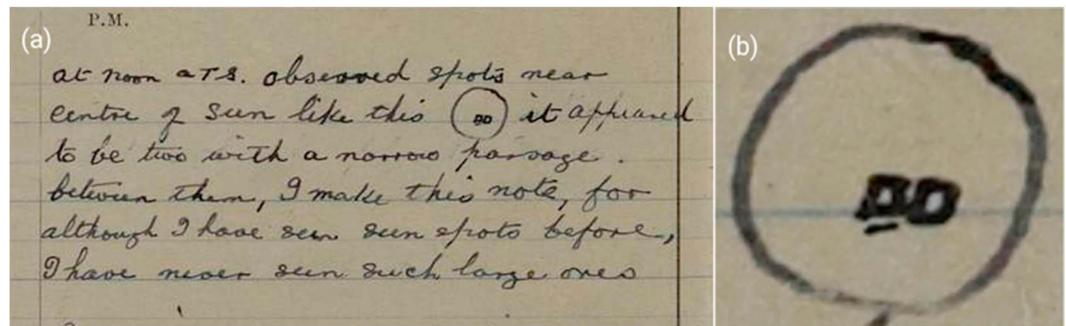 P.M.
(a)
at noon a T S. observed spots near
centre of sun like this it appeared
to be two with a narrow passage.
between them, I make this note, for
although I have seen sun spots before,
I have never seen such large ones
(b)